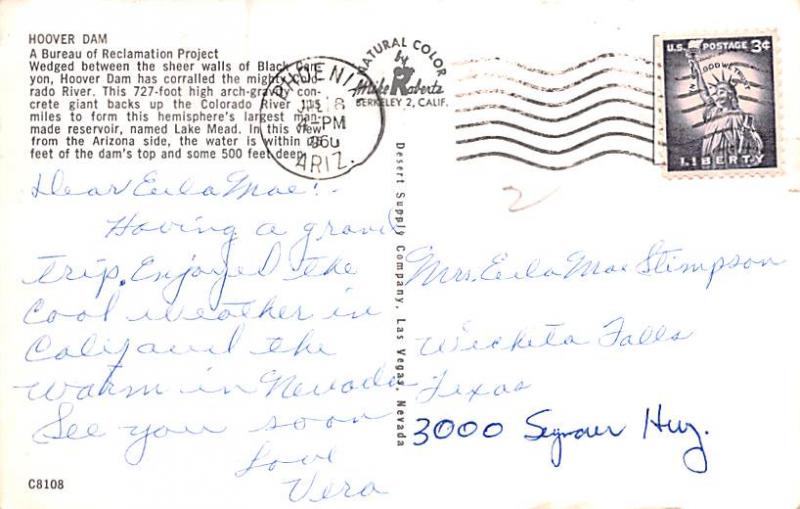 HOOVER DAM
A Bureau of Reclamation Project
Wedged between the sheer walls of Black Can-
yon, Hoover Dam has corralled the mighty Colo-
rado River. This 727-foot high arch-gravity con-
crete giant backs up the Colorado River 115
miles to form this hemisphere's largest man-
made reservoir, named Lake Mead. In this view
from the Arizona side, the water is within
feet of the dam's top and some 500 feet deep.
Dear Eula Mae:-
Having a grand
trip. Enjoyed the
cool weather in
Calif and the
warm in Nevada
See you soon
Love
Vera
C8108
PHOENIX
PM
1960
ARIZ.
NATURAL COLOR
by
Mike Roberts
BERKELEY 2, CALIF.
Desert Supply Company, Las Vegas, Nevada
U.S. POSTAGE 3¢
IN GOD WE TRUST
LIBERTY
2
Mrs. Eula Mae Stimpson
Wichita Falls
Texas
3000 Seymour Hwy.